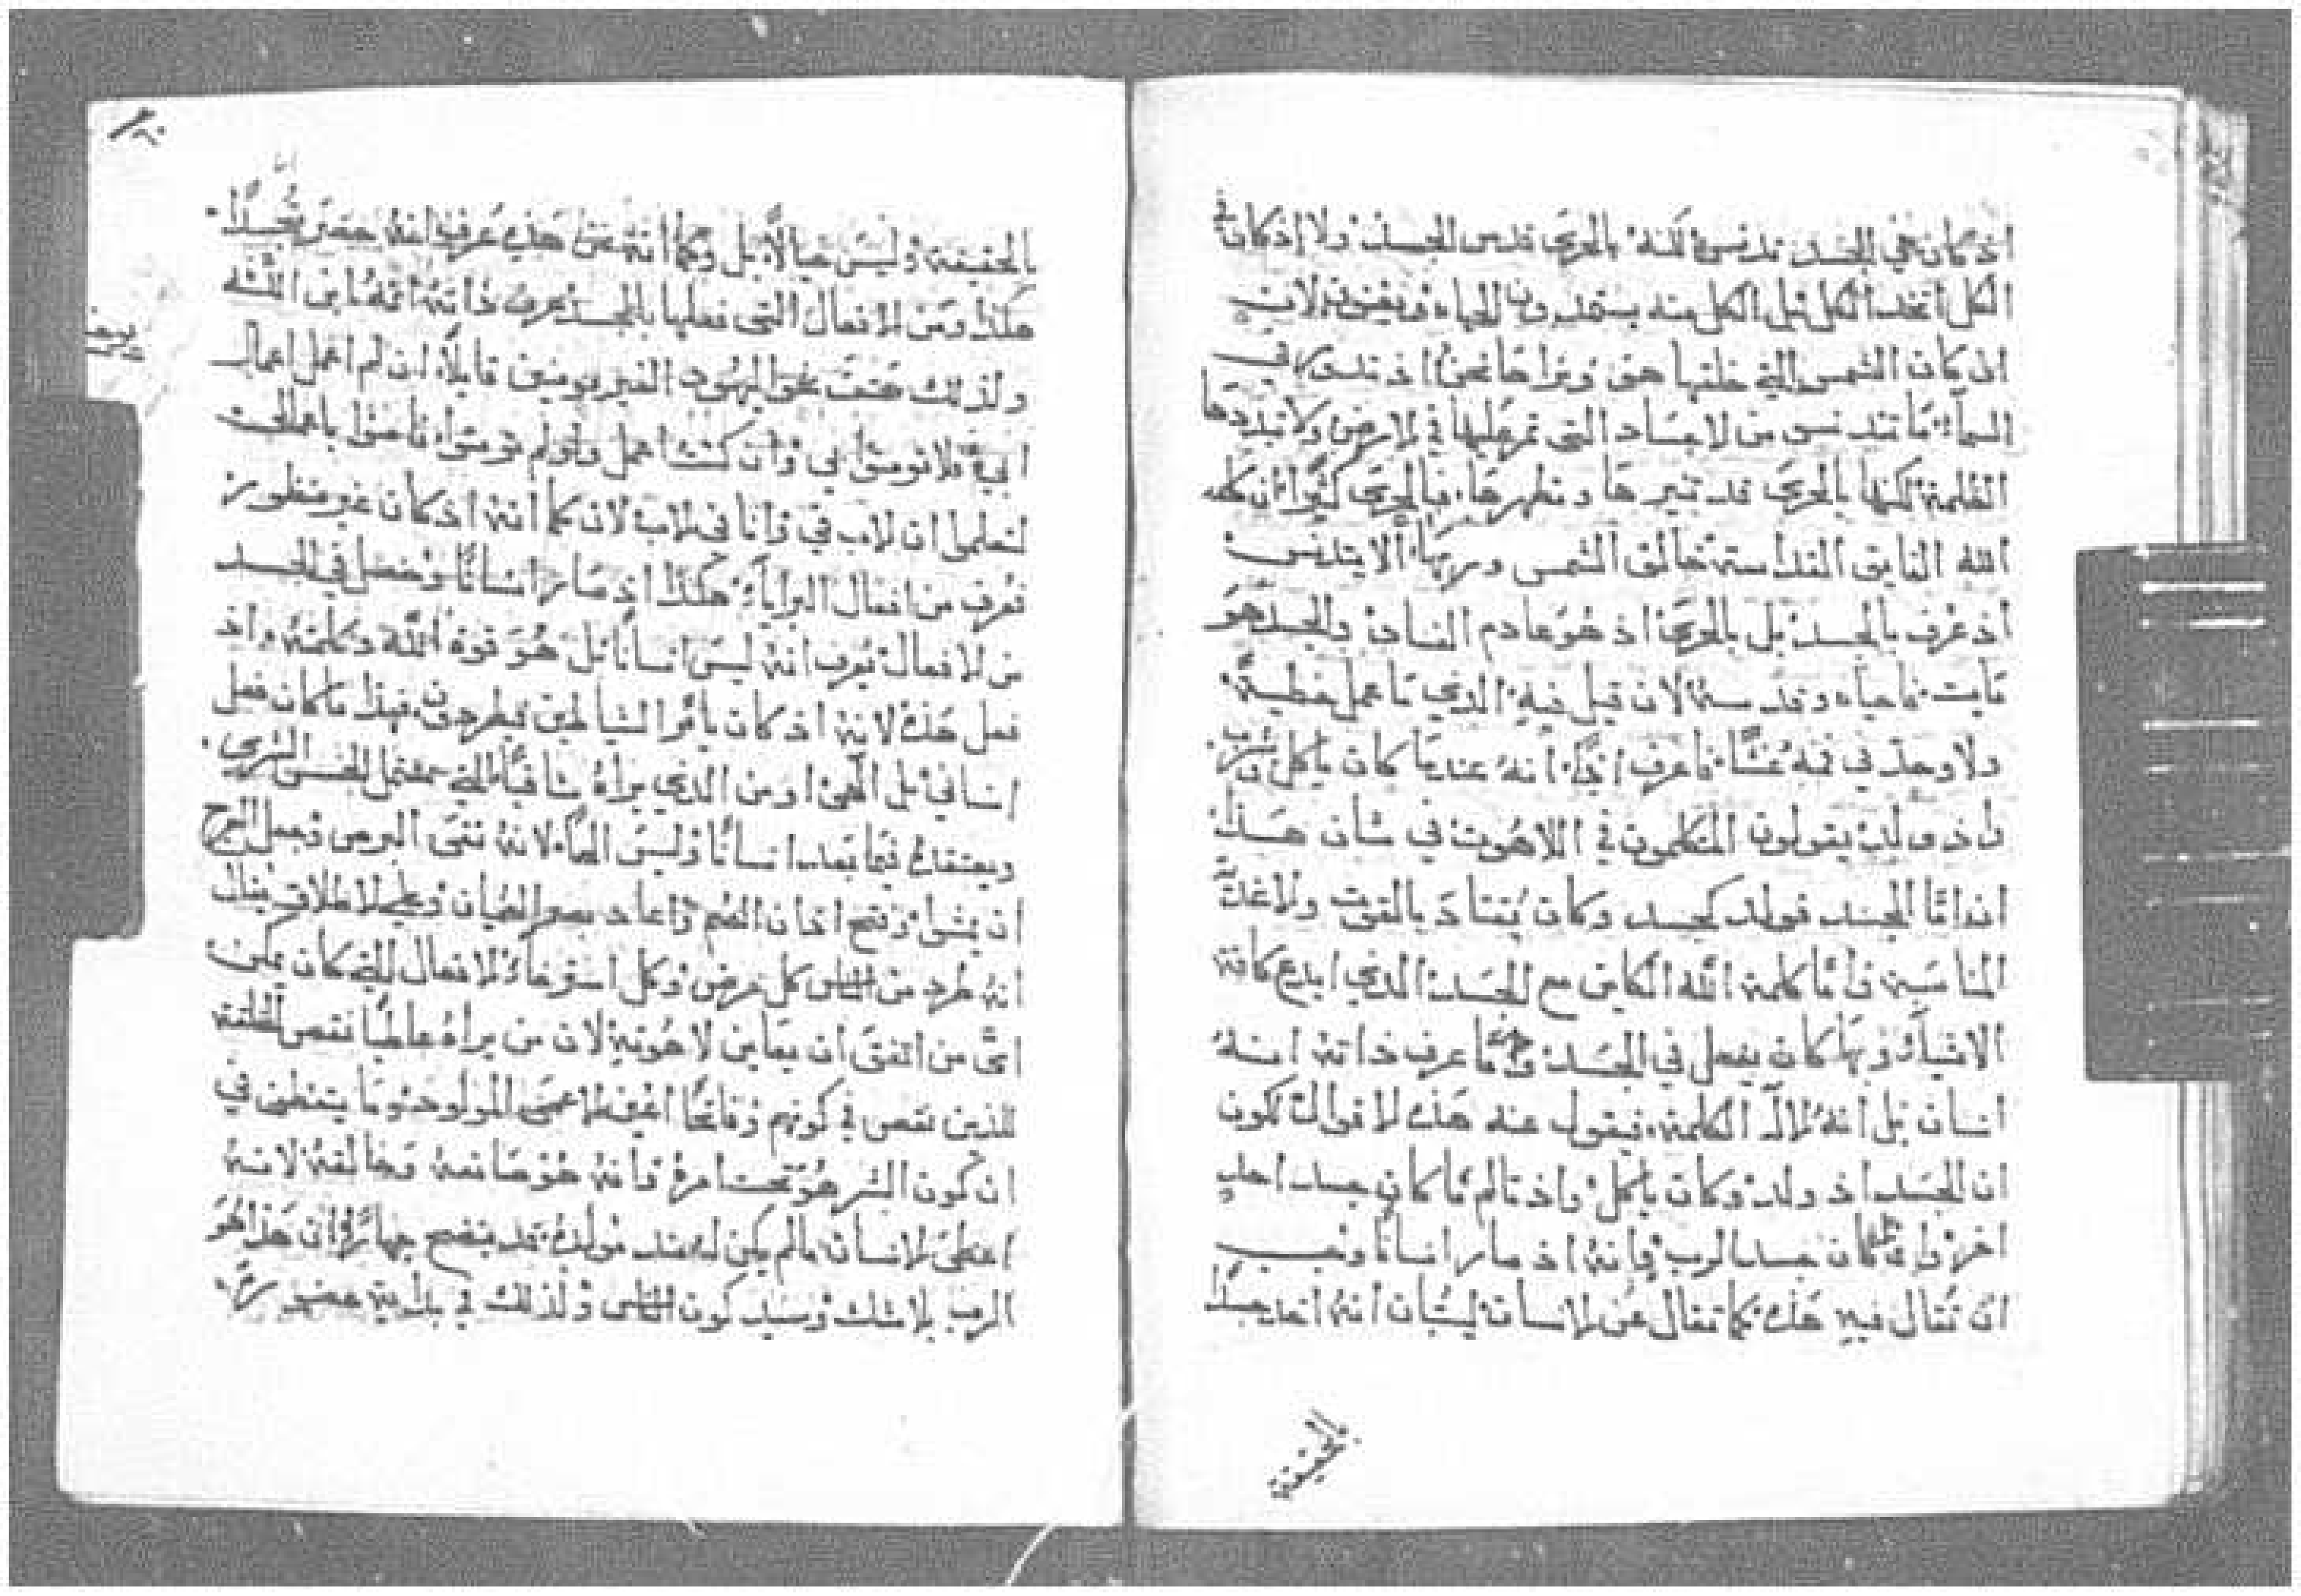 اذ كان في الجسد تدنس لكنه بالحري قدس الجسد ولا اذ كان في
الكل اتخذ الكل بل الكل منه يستمدون الحياه و لان
ان كان الشمس التي خلقها هو ونراها نحن اذ تدور في
السماء ما تتدنس من لاجساد التي تمر عليها في لارض ولا تبددها
الظلمة لكنها بالحري قد تنيرها وتطهرها فبالحري كثيرا ان كلمه
الله الفايق القداسة خالق الشمس وربها الا يتدنس
اذ عرف بالجسد بل بالحري اذ هو عادم الفساد والجسد هو
مايت فاحياه وقدسه لان قيل فيه الذي ما عمل خطية
ولا وجد في فمه غشا فاعرف اذا انه عندما كان ياكل ويشرب
اذ ولد يقولون المتكلمون في اللاهوت في شان هذا
ان اما الجسد فولد كجسد وكان يقتاد بالقوت ولاغذية
المناسبة فاما كلمة الله الكاين مع الجسد الذي ابدع كافة
الاشياء وبما كان يفعل في الجسد ما عرف ذاته انه
انسان بل انه لاله الكلمة فيقول عنه هذه لاقوال لكون
ان الجسد اذ ولد وكان ياكل واذ تالم ما كان جسد احد
اخر كان جسد الرب وانه اذ صار انسانا وجب
ان تقال فيه هذه كما تقال عن لانسان ليتبان انه اخذ جسدا
بالحقيقة
بالحقيقة وليس خيالا بل وكما انه من هذي عرف انه حضر بجسد
هكذا ومن لافعال التي فعلها بالجسد عرف ذاته انه ابن الله
ولذلك هتف نحو اليهود الغير مومنين قايلا ان لم اعمل اعمال
ابي فلا تومنوا بي وان كنت اعمل ولو لم تومنوا فامنوا باعمالي
لتعلموا ان لاب في وانا في لاب لان كما انه اذ كان غير منظور
تعرف من افعال البرايا هكذا اذ صار انسانا وحصل في الجسد
من لافعال يعرف انه ليس انسانا بل هو قوة الله وكلمته واذ
فعل هذه لانه اذ كان يامر الشياطين فيطردون فهذا ما كان فعل
انساني بل الهي او من الذي يراه شافيا التي تشتمل الجنس البشري
ويعتقده فيما بعد انسانا وليس الها لانه نقى البرص وجعل العرج
ان يمشوا وفتح اذان الصم واعاد بصر العميان وعلى لاطلاق يقال
انه طرد من الناس كل مرض وكل استرخاء لافعال التي كان يمكن
اي من اتفق ان يعاين لاهوته لان من يراه عاطيا نقص الخلقة
للذين نقص في كونهم وفاتحا اعين لاعمى المولود وما يتفطن في
ان كون البشر هو تحت امره وانه هو صانعه وخالقه لانه
اعطى لانسان مالم يكن له منذ مولده قد يتضح جهارا ان هذا هو
الرب بلا شك وسيد كون الناس ولذلك في بداية حضوره